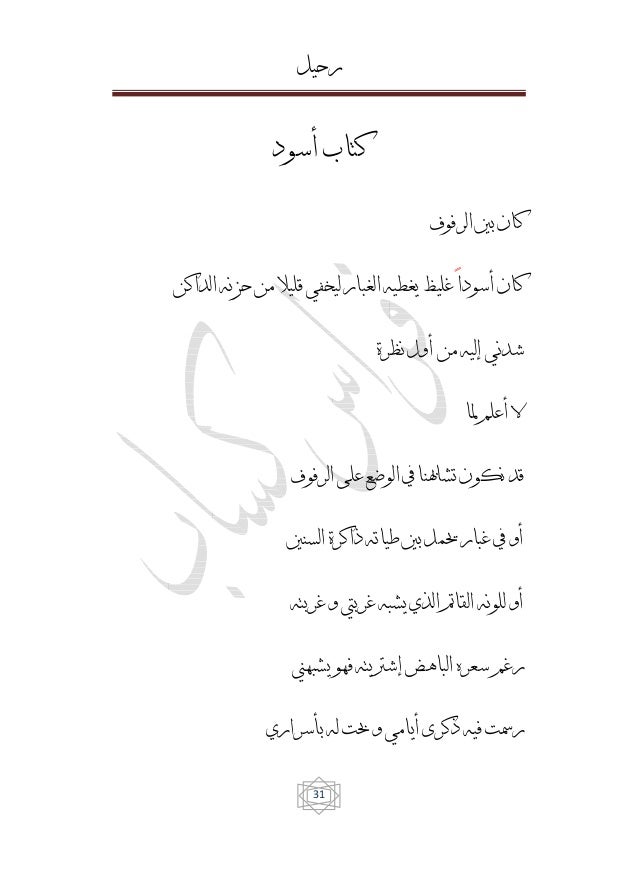 رحيل
كتاب أسود
كان بين الرفوف
كان أسوداً غليظ يغطيه الغبار ليخفي قليلا من حزنه الداكن
شدني إليه من أول نظرة
لا أعلم لما
قد نكون تشابهنا في الوضع على الرفوف
أو في غبار يحمل بين طياته ذاكرة السنين
أو للونه القاتم الذي يشبه غربتي و غربته
رغم سعره الباهض إشتريته فهو يشبهني
رسمت فيه ذكرى أيامي و بحت له بأسراري
31
فراس كساب